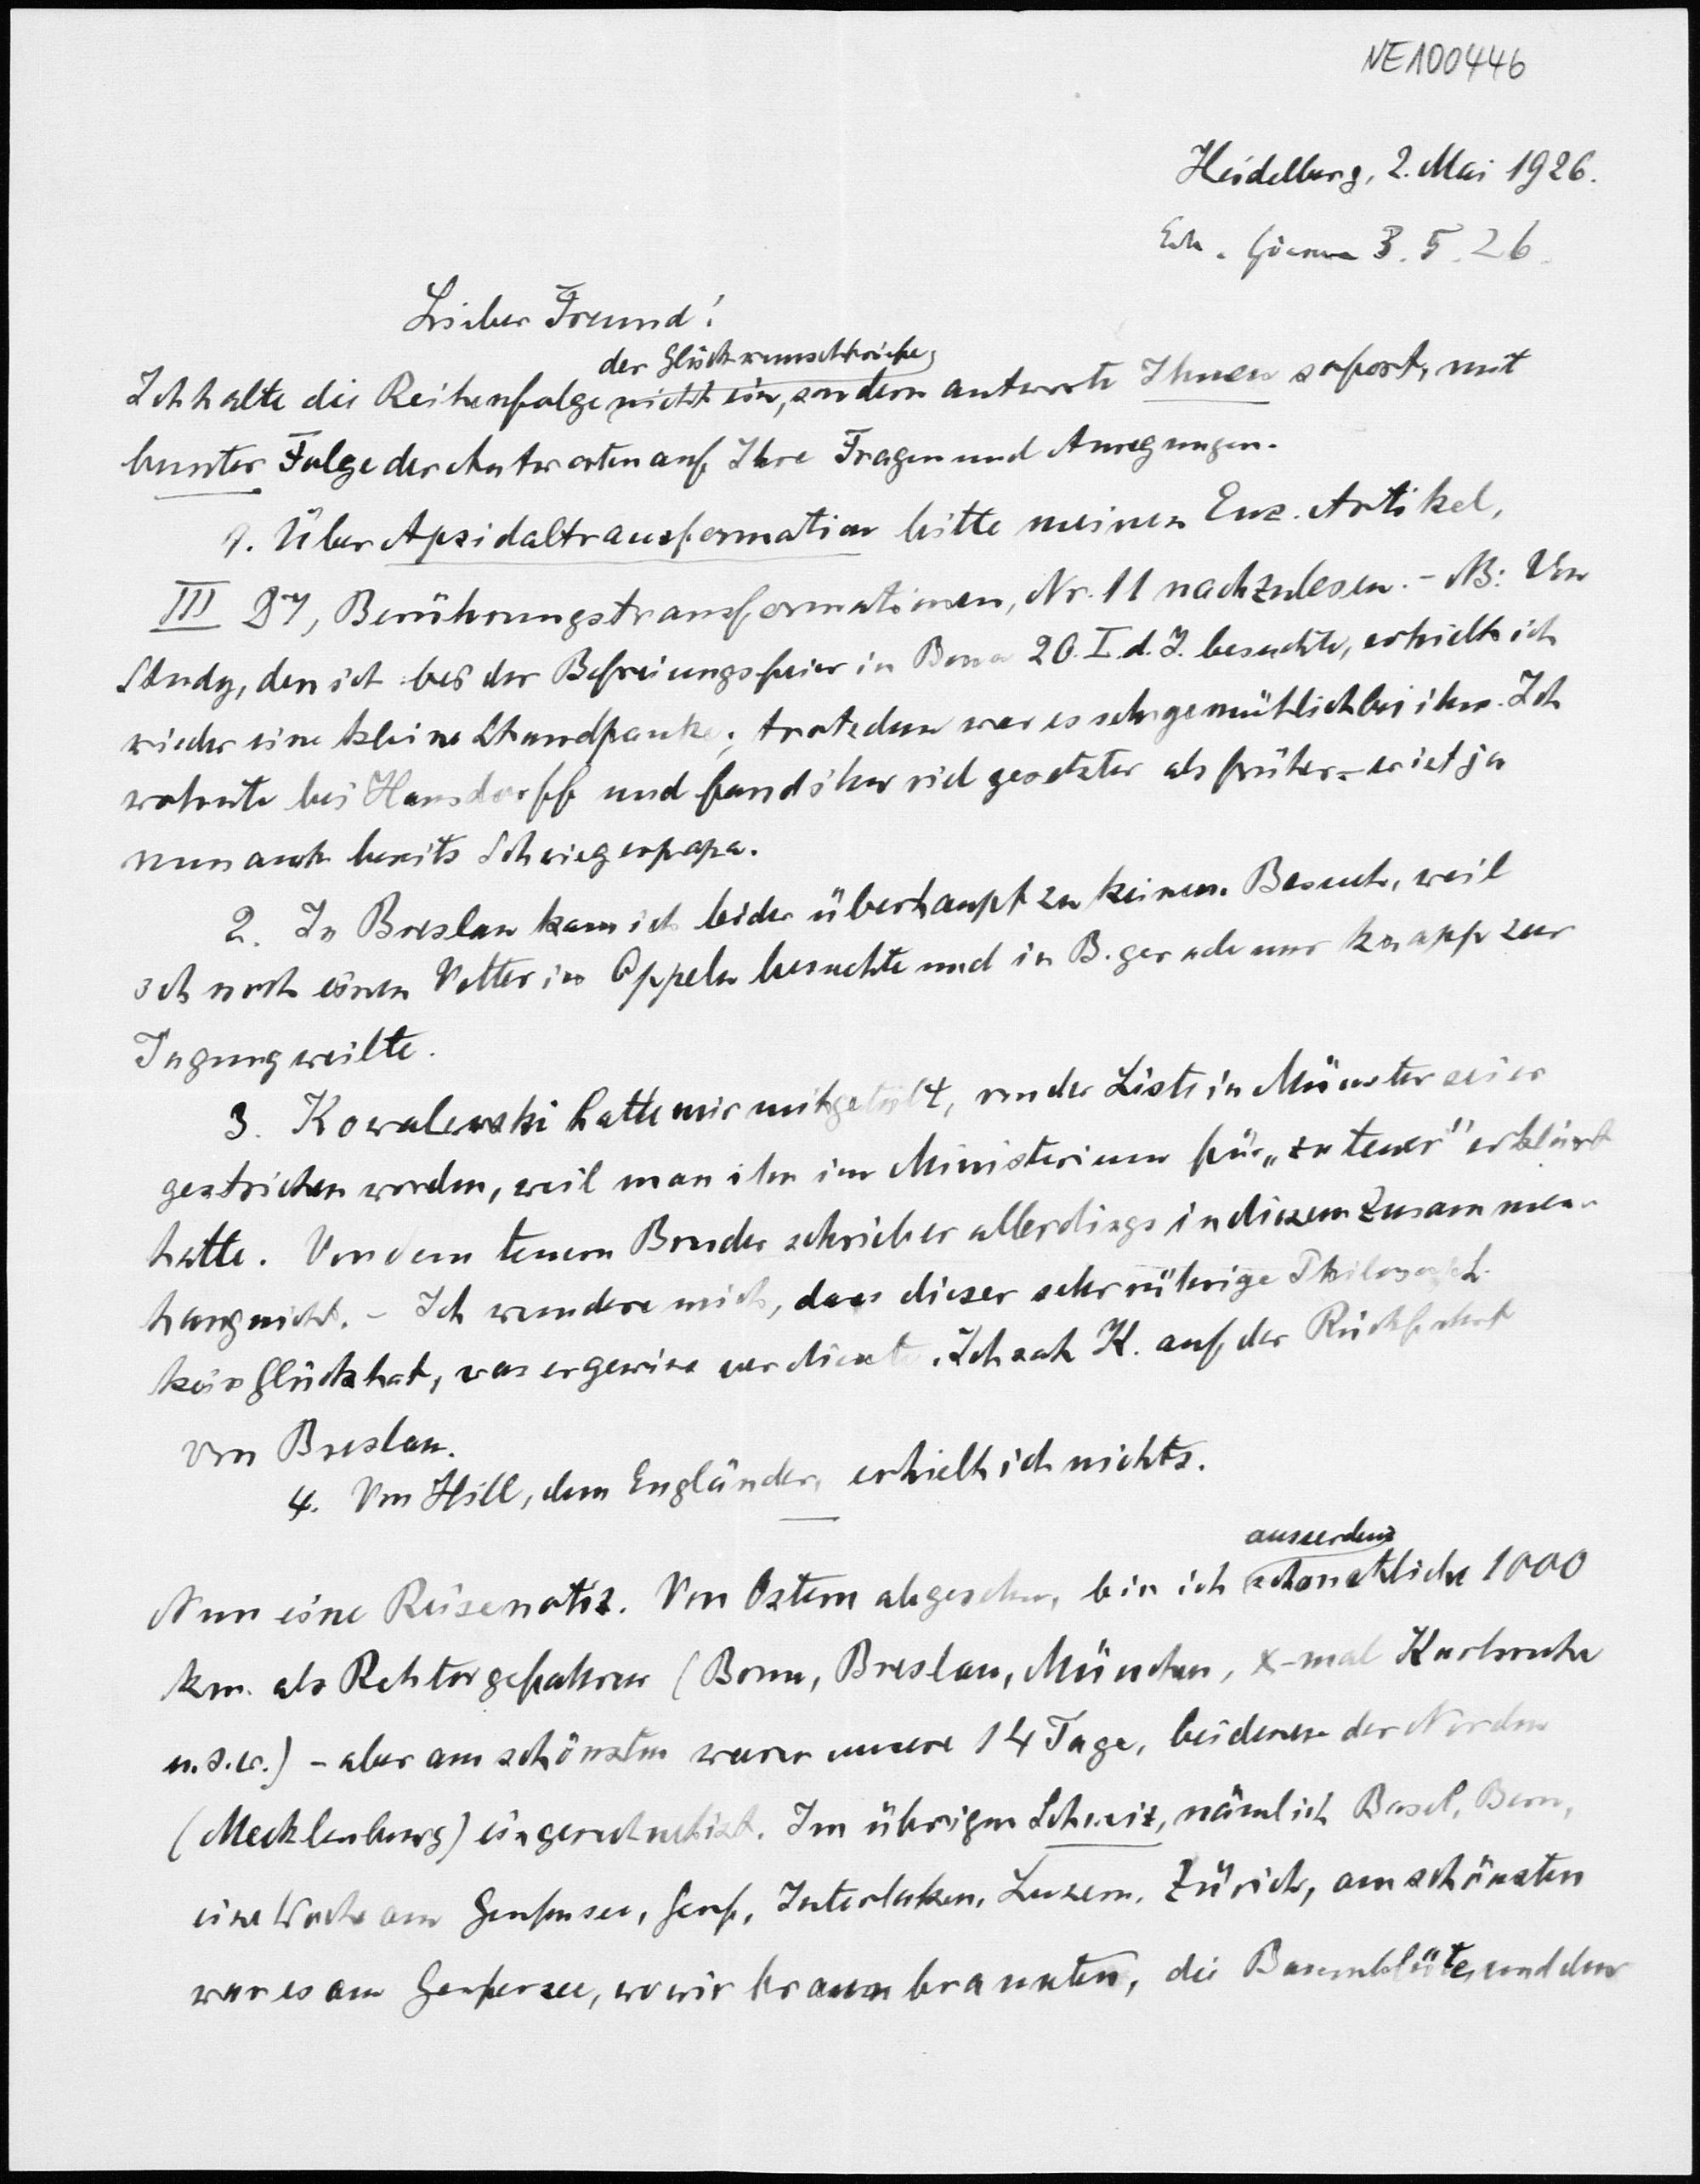 NE100446
Heidelberg, 2. Mai 1926.
3. 5. 26.
Lieber Freund!
der Glückwunschbriefe
Ich halte die Reihenfolge nicht ein, sondern antworte Ihnen sofort, mit
bunter Folge der Antworten auf Ihre Fragen und Anregungen.
1. Über Apsidaltransformation bitte meinen Enz. Artikel,
III D7, Berührungstransformationen, Nr. 11 nachzulesen. - NB: Von
Study, den ich bei der Befreiungsfeier in Bonn 20. I. d. J. besuchte, erhielt ich
wieder eine kleine Standpauke; trotzdem war es sehr gemütlich bei ihm. Ich
wohnte bei Hausdorff und fand ihn viel gesetzter als früher - er ist ja
nun auch bereits Schwiegerpapa.
2. In Breslau kam ich leider überhaupt zu keinem Besuch, weil
ich noch einen Vetter in Oppeln besuchte und in B. gerade nur knapp zur
Tagung weilte.
3. Kowalewski hatte mir mitgeteilt, von der Liste in Münster sei er
gestrichen worden, weil man ihn im Ministerium für „zu teuer" erklärt
hatte. Von dem teuern Bruder schrieb er allerdings in diesem Zusammen-
hang nicht. - Ich wundere mich, dass dieser sehr rührige Philosoph
kein Glück hat, was er gewiss verdiente. Ich sah K. auf der Rückfahrt
von Breslau.
4. Von Hill, dem Engländer, erhielt ich nichts.
ausserdem
Nun eine Reisenotiz. Von Ostern abgesehen, bin ich schon etliche 1000
km. als Rektor gefahren (Bonn, Breslau, München, x-mal Karlsruhe
u.s.w.) - aber am schönsten waren unsere 14 Tage, bei denen der Norden
(Mecklenburg) Im übrigen Schweiz, nämlich Basel, Bern,
eine Woche am Genfersee, Genf, Interlaken, Luzern, Zürich, am schönsten
war es am Genfersee, wo wir braun brannten, die Baumblüte und den